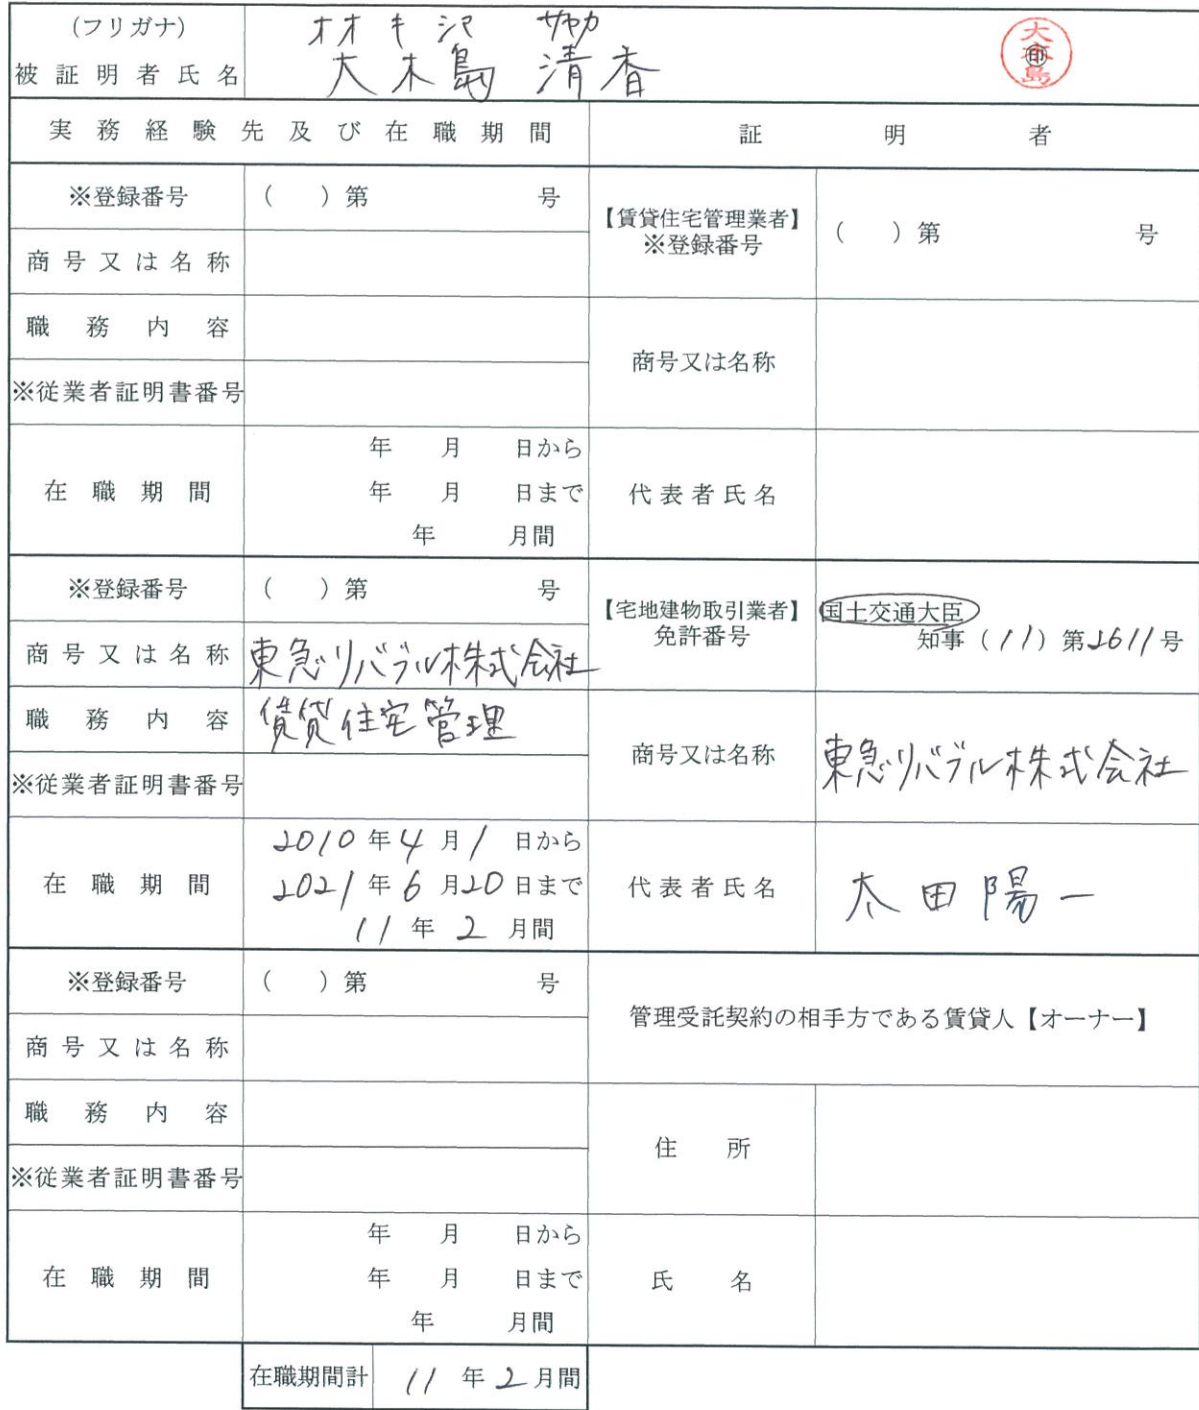 (フリガナ) オオキジマ サヤカ
被証明者氏名 大木島 清香
大木島 ㊞
実務経験先及び在職期間
証明者
※登録番号 ( )第 号
商号又は名称
職務内容
※従業者証明書番号
在職期間
年 月 日から
年 月 日まで
年 月間
【賃貸住宅管理業者】
※登録番号
( )第 号
商号又は名称
代表者氏名
※登録番号 ( )第 号
商号又は名称 東急リバブル株式会社
職務内容 賃貸住宅管理
※従業者証明書番号
在職期間
2010年4月1日から
2021年6月20日まで
11年2月間
【宅地建物取引業者】
免許番号
国土交通大臣
知事(11)第2611号
商号又は名称 東急リバブル株式会社
代表者氏名 太田陽一
※登録番号 ( )第 号
商号又は名称
職務内容
※従業者証明書番号
在職期間
年 月 日から
年 月 日まで
年 月間
管理受託契約の相手方である賃貸人【オーナー】
住所
氏名
在職期間計 11年2月間